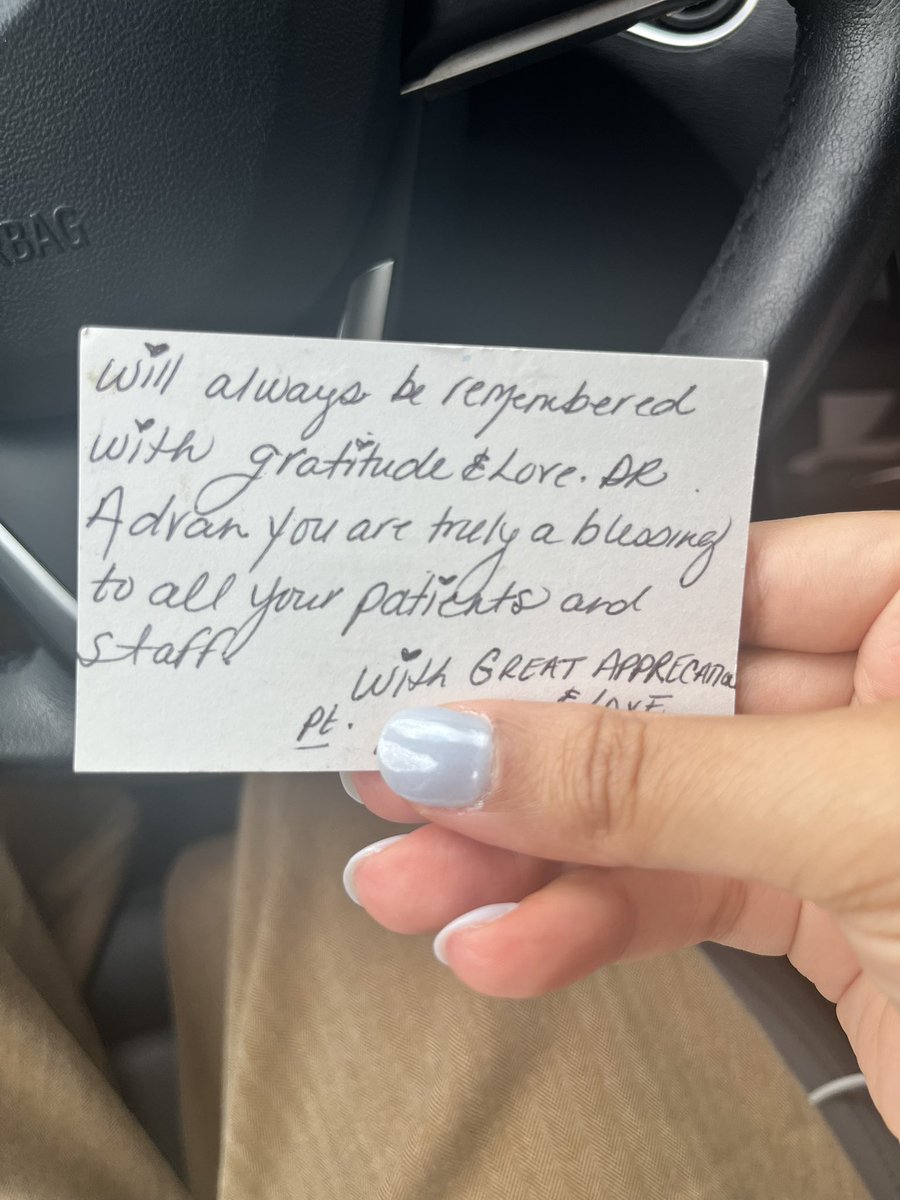 RBAG
Will always be remembered
with gratitude & Love. DR.
Advan you are truly a blessing
to all your patients and
staff.
With GREAT APPRECATION
& LOVE
Pt.